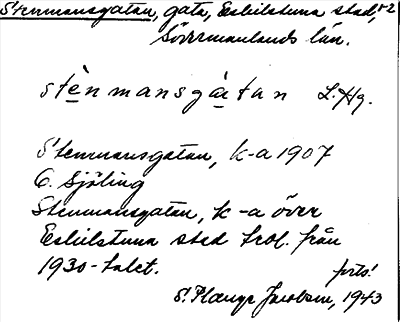 Stenmansgatan, gata, Eskilstuna stad, +2
Södermanlands län.
stènmansgàtan L. Hg.
Stenmansgatan, k-a 1907
C. Sjöling
Stenmansgatan, k-a över
Eskilstuna stad trol. från
1930-talet. forts!
S. Plange Jacobson, 1943